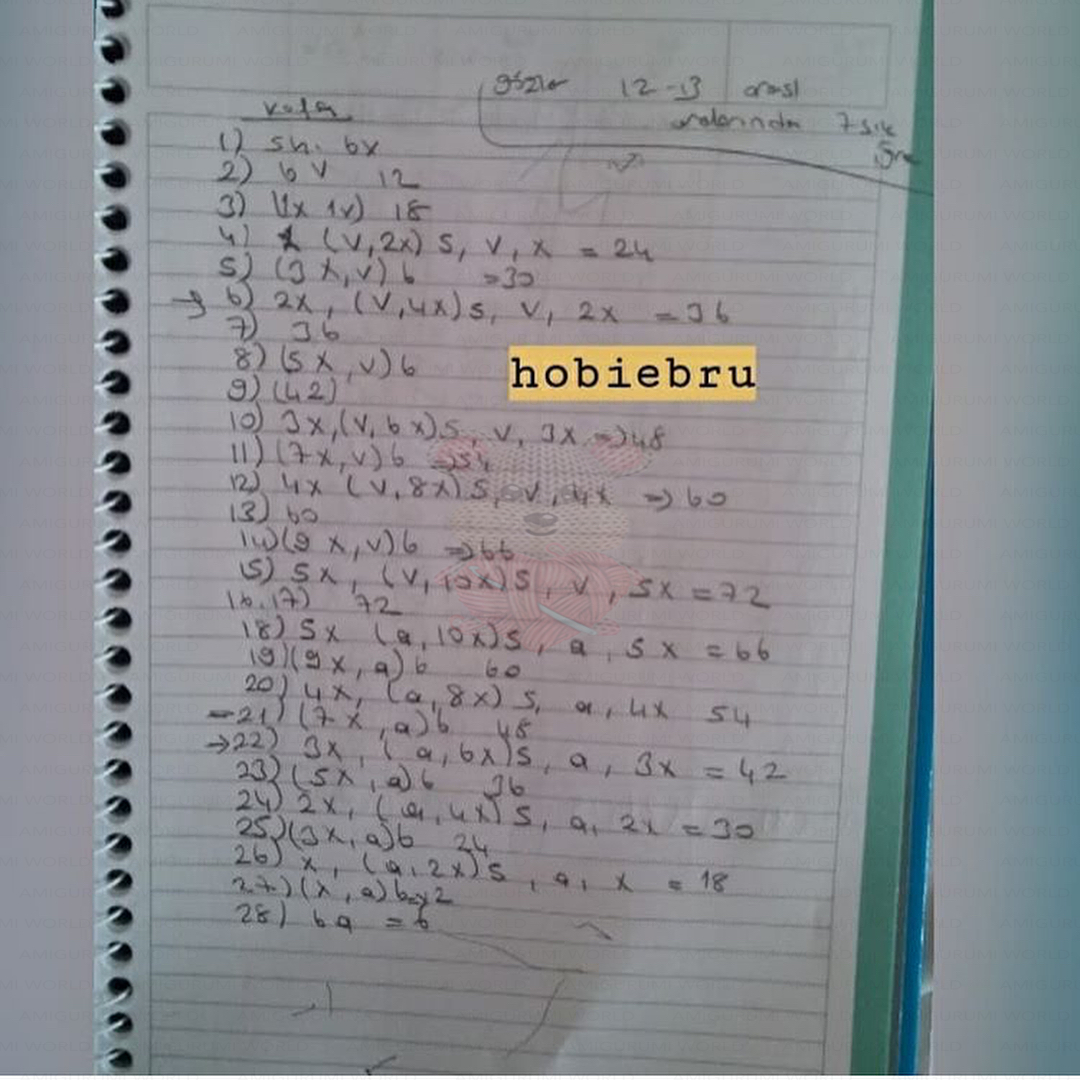 gözler 12-13 arası
aralarında 7 sık
kafa
1) sh. 6x
2) 6 V 12
3) (1x 1v) 18
4) (V, 2x) 5, V, X = 24
5) (3 X, V) 6 =30
→ 6) 2x, (V, 4x) 5, V, 2x = 36
7) 36
8) (5 X, V) 6
hobiebru
9) (42)
10) 3x, (V, 6x) 5 V, 3x => 48
11) (7x, V) 6 => 54
12) 4x (V, 8x) 5, V, 4x => 60
13) 60
14) (9 x, V) 6 => 66
15) 5x, (V, 10x) 5, V, 5x = 72
16.17) 72
18) 5x (a, 10x) 5, a, 5x = 66
19) (9x, a) 6 60
20) 4x, (a, 8x) 5, a, 4x 54
- 21) (7 x, a) 6 48
→ 22) 3x, (a, 6x) 5, a, 3x = 42
23) (5x, a) 6 36
24) 2x, (a, 4x) 5, a, 2x = 30
25) (3x, a) 6 24
26) x, (a, 2x) 5, a, x = 18
27) (x, a) 6 =12
28) 6a = 6